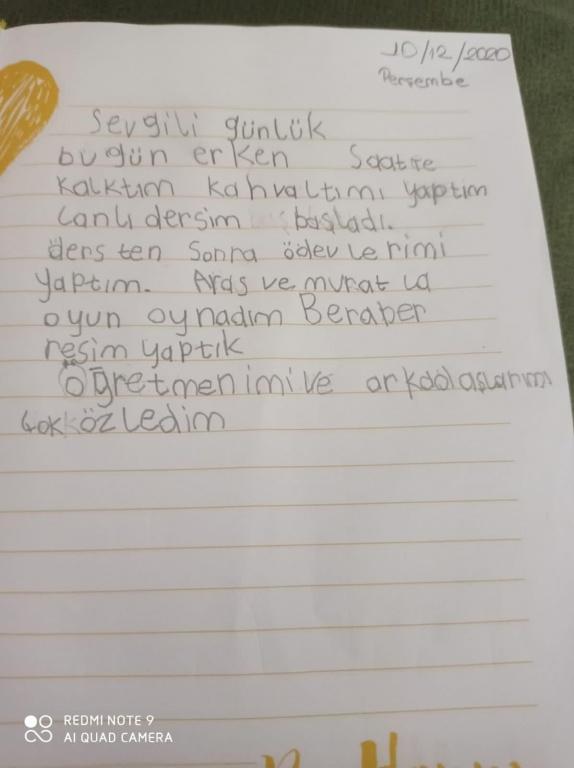 10/12/2020
Perşembe
Sevgili günlük
bugün erken Saatte
Kalktım kahvaltımı yaptım
Canlı dersim başladı.
ders ten Sonra ödevlerimi
yaptım. Aras ve murat la
oyun oynadım Beraber
resim yaptık
Öğretmenimi ve arkadaşlarımı
çok özledim
REDMI NOTE 9
AI QUAD CAMERA